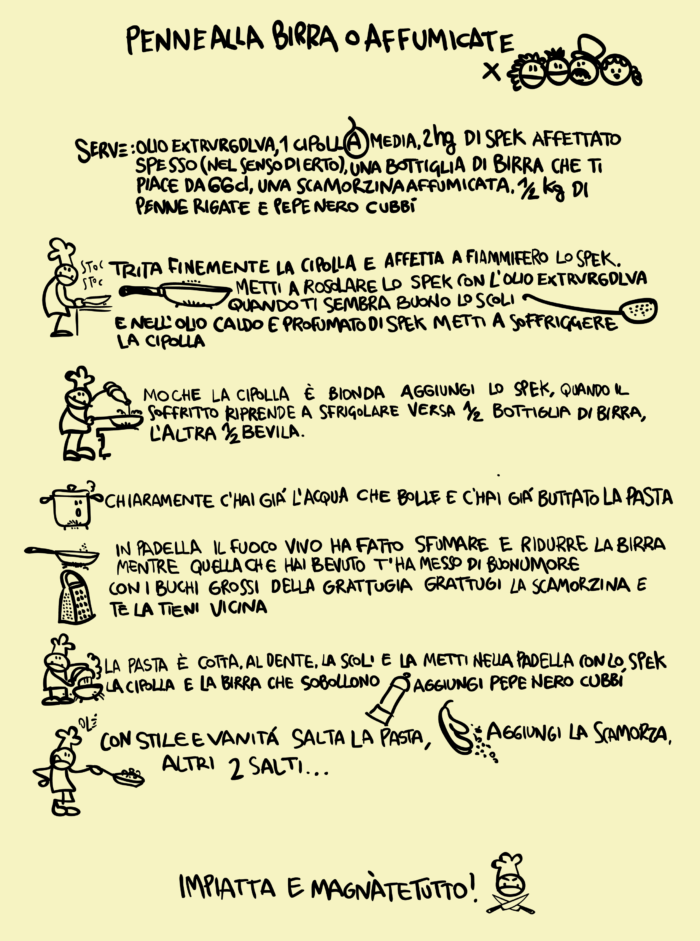 PENNE ALLA BIRRA O AFFUMICATE
X
SERVE: OLIO EXTRVRGOLVA, 1 CIPOLLA MEDIA, 2hg DI SPEK AFFETTATO
SPESSO (NEL SENSO DI ERTO), UNA BOTTIGLIA DI BIRRA CHE TI
PIACE DA 66cl, UNA SCAMORZINA AFFUMICATA, 1/2 kg DI
PENNE RIGATE E PEPE NERO CUBBÍ
STOC
STOC
TRITA FINEMENTE LA CIPOLLA E AFFETTA A FIAMMIFERO LO SPEK.
METTI A ROSOLARE LO SPEK CON L'OLIO EXTRVRGOLVA
QUANDO TI SEMBRA BUONO LO SCOLI
E NELL'OLIO CALDO E PROFUMATO DI SPEK METTI A SOFFRIGGERE
LA CIPOLLA
MO CHE LA CIPOLLA È BIONDA AGGIUNGI LO SPEK, QUANDO IL
SOFFRITTO RIPRENDE A SFRIGOLARE VERSA 1/2 BOTTIGLIA DI BIRRA,
L'ALTRA 1/2 BEVILA.
CHIARAMENTE C'HAI GIÁ L'ACQUA CHE BOLLE E C'HAI GIÁ BUTTATO LA PASTA
IN PADELLA IL FUOCO VIVO HA FATTO SFUMARE E RIDURRE LA BIRRA
MENTRE QUELLA CHE HAI BEVUTO T'HA MESSO DI BUONUMORE
CON I BUCHI GROSSI DELLA GRATTUGIA GRATTUGI LA SCAMORZINA E
TE LA TIENI VICINA
LA PASTA È COTTA, AL DENTE, LA SCOLI E LA METTI NELLA PADELLA CON LO SPEK
LA CIPOLLA E LA BIRRA CHE SOBOLLONO AGGIUNGI PEPE NERO CUBBÍ
OLÉ
CON STILE E VANITÁ SALTA LA PASTA, AGGIUNGI LA SCAMORZA,
ALTRI 2 SALTI...
IMPIATTA E MAGNÀTETUTTO!